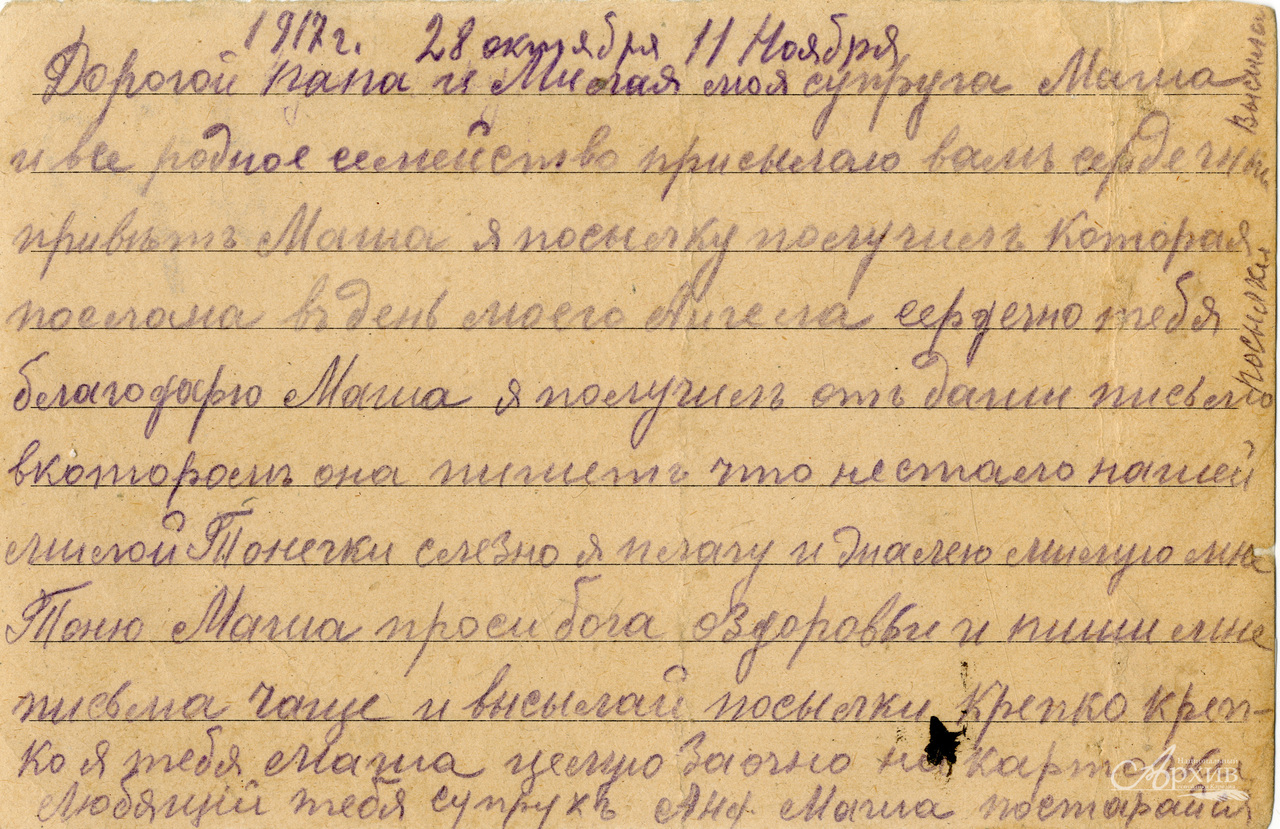 1917 г. 28 октября 11 Ноября
Дорогой папа и Милая моя супруга Маша
и все родное семейство присылаю вамъ сердечный
привѣтъ Маша я посылку получилъ Которая
послана въ день моего Ангела сердечно тебя
благодарю Маша я получилъ отъ даши письмо
вкоторомъ она пишетъ что нестало нашей
милой Тонечки слезно я плачу и жалею милую мне
Тоню Маша проси бога оздоровьи и пиши мне
письма чаще и высылай посылки Крепко креп-
ко я тебя Маша целую Заочно на
Любящий тебя супрукъ Анф Маша постарайся
Высылай посылки
Национальный
Архив